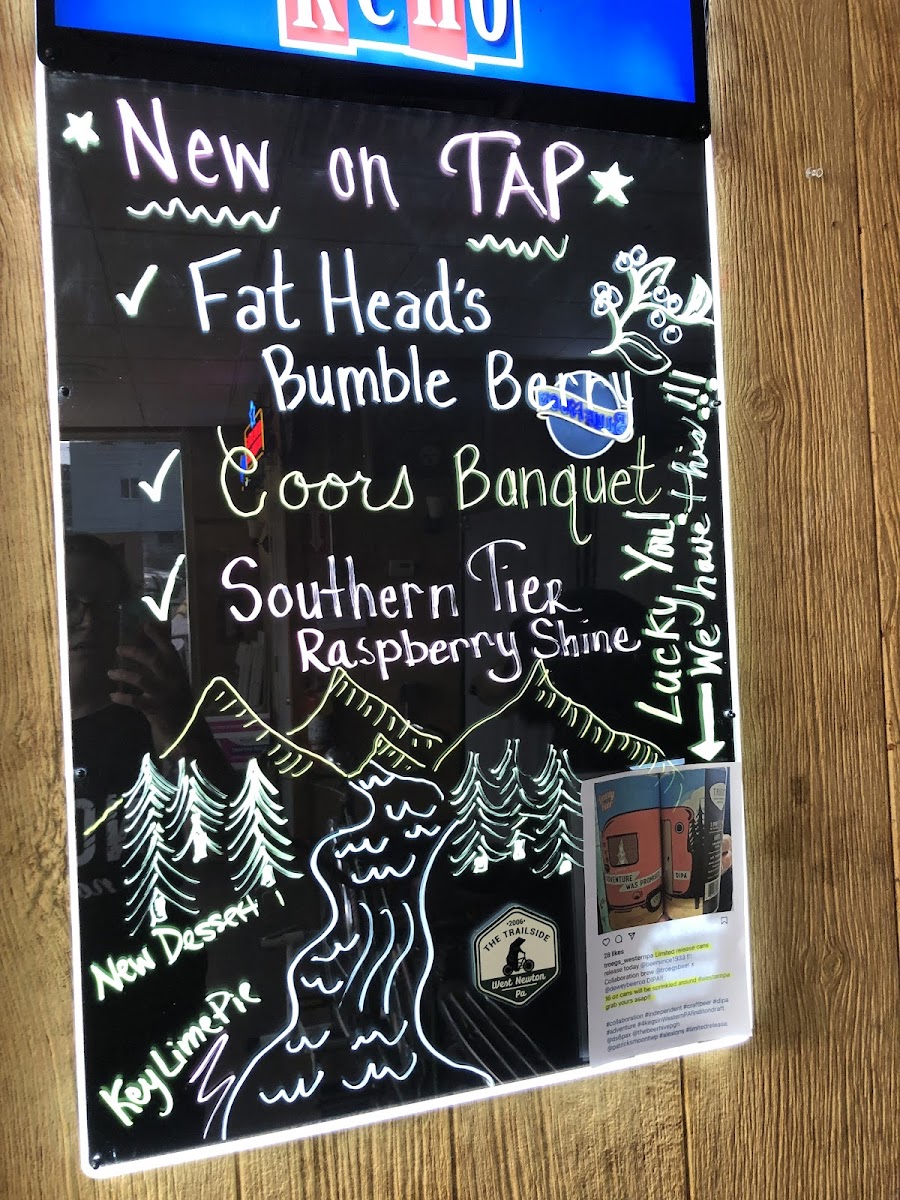 Keno
New on TAP
Fat Head's
Bumble Berry
Coors Banquet
Southern Tier
Raspberry Shine
Lucky You!
We have this!!!
New Dessert!
Key Lime Pie
•2006•
THE TRAILSIDE
West Newton
Pa
ADVENTURE
WAS PROMISED
DIPA
28 likes
troegs_westernpa Limited release cans
release today @beersince1933 !!!
Collaboration brew @troegsbeer x
@deweybeerco DIPA!!
16 oz cans will be sprinkled around @westernpa
grab yours asap!!
#collaboration #independent #craftbeer #dipa
#adventure